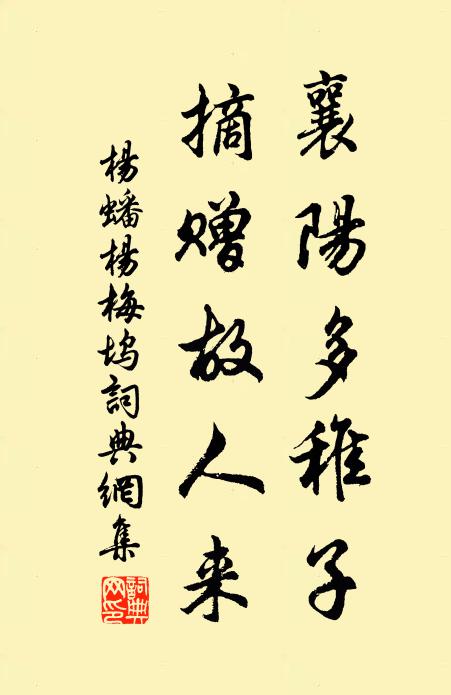 襄陽多稚子
摘赠故人来
楊蟠楊梅坞詞典網集
詞典网印